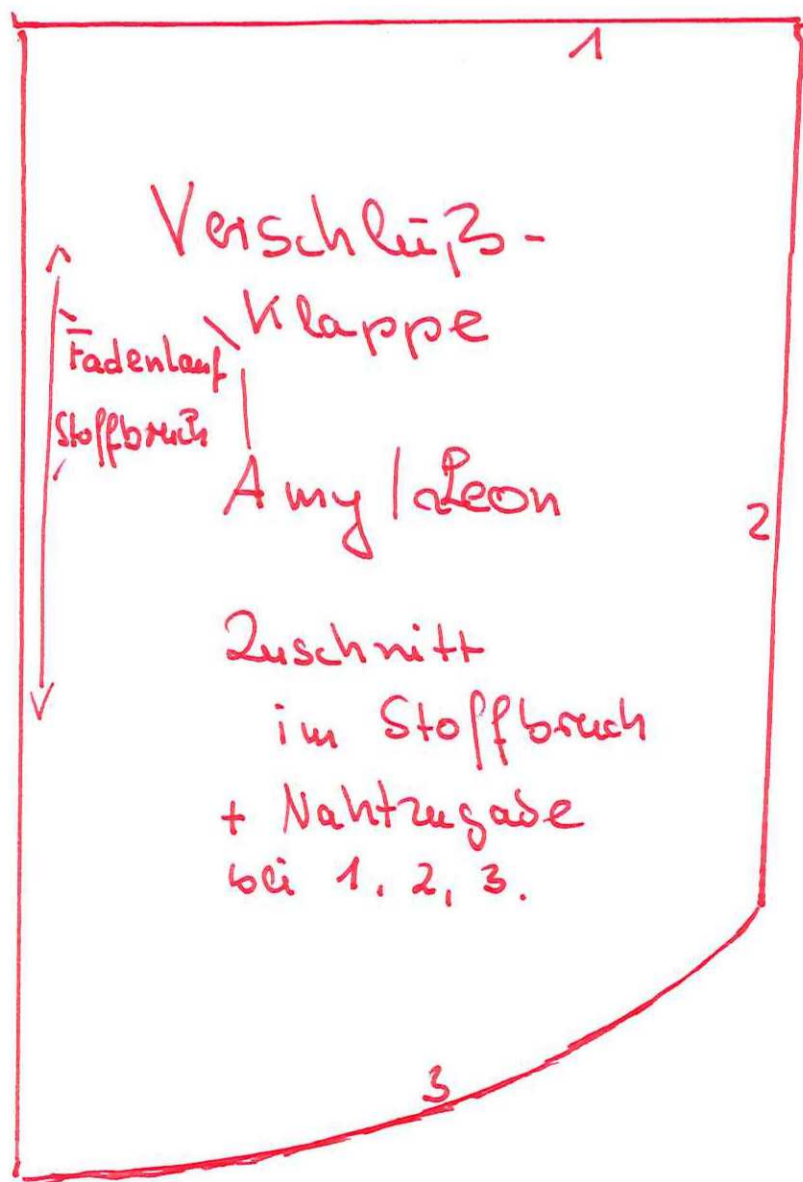 1
Verschluß-
Klappe
Fadenlauf
Stoffbruch
Amy / Leon
2
Zuschnitt
im Stoffbruch
+ Nahtzugabe
bei 1, 2, 3.
3